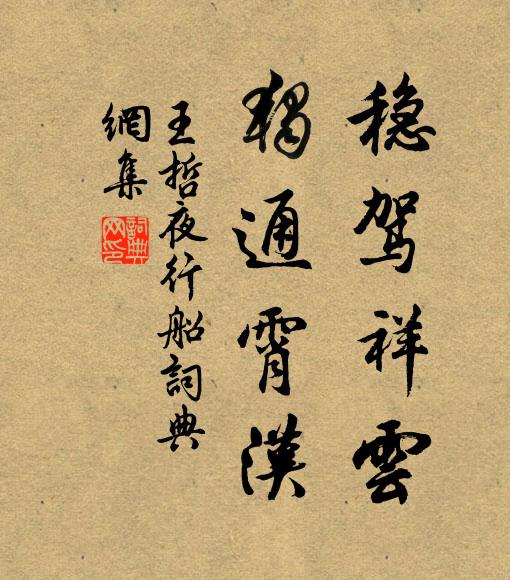 穏驾祥雲
獨通霄漢
王哲夜行船詞典
網集
詞典
网印